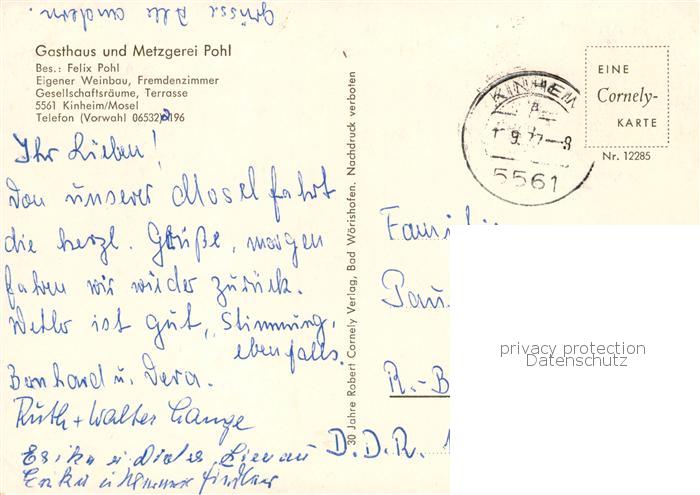 Grüsse Alle andern.
Gasthaus und Metzgerei Pohl
Bes.: Felix Pohl
Eigener Weinbau, Fremdenzimmer
Gesellschaftsräume, Terrasse
5561 Kinheim/Mosel
Telefon (Vorwahl 06532) 2196
Ihr Lieben!
Von unserer Moselfahrt
die herzl. Grüße, morgen
fahren wir wieder zurück.
Wetter ist gut, Stimmung
ebenfalls.
Bernhard u. Vera.
Ruth + Walter Lange
Erika u Dieter
Erika u
30 Jahre Robert Cornely Verlag, Bad Wörishofen. Nachdruck verboten
KINHEIM
9.77-8
5561
EINE
Cornely-
KARTE
Nr. 12285
Familie
Pau
R.-B
D.D.R.
privacy protection
Datenschutz